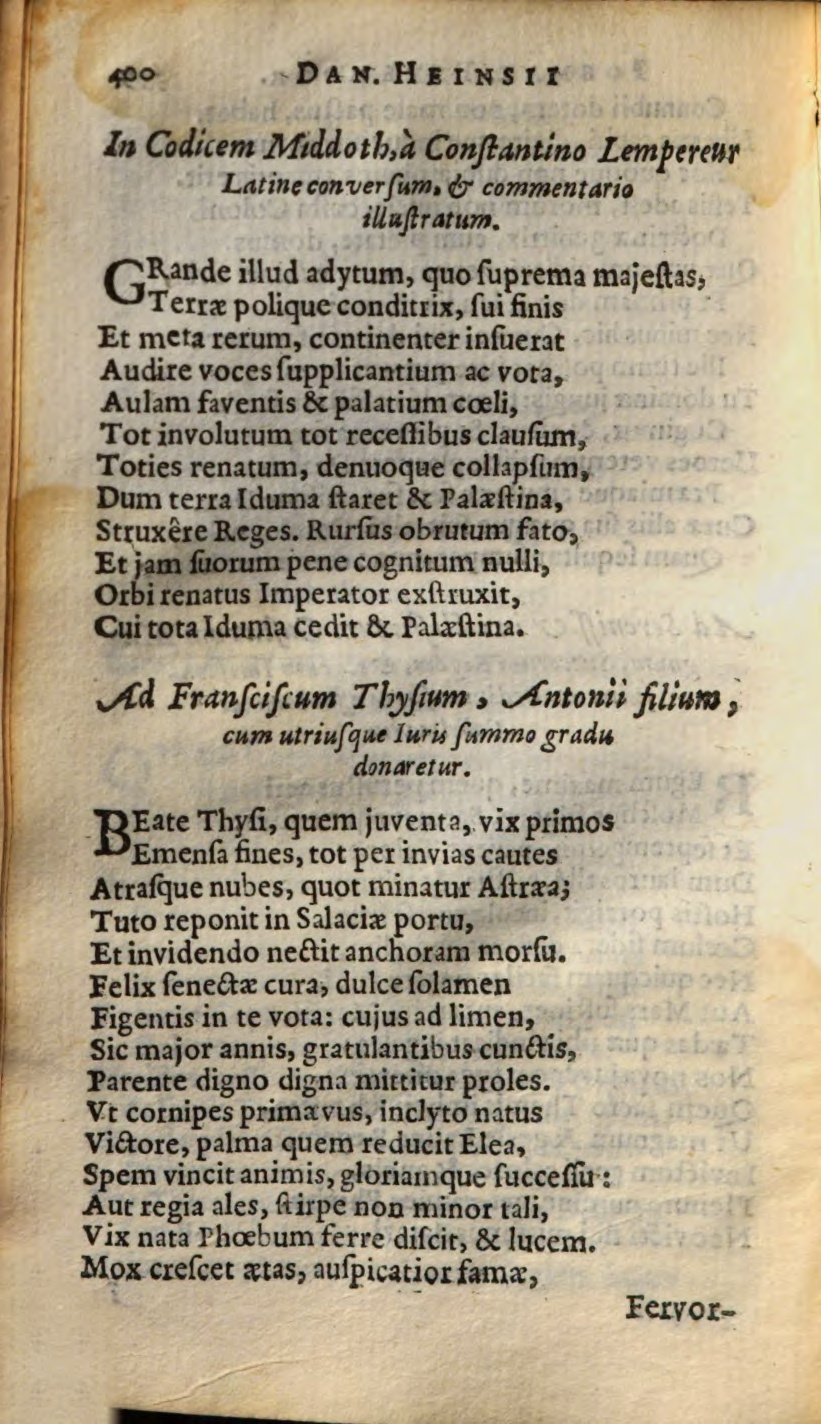 400 DAN. HEINSII
In Codicem Middoth, à Conſtantino Lempereur
Latine converſum, & commentario
illuſtratum.
GRande illud adytum, quo ſuprema majeſtas,
Terræ polique conditrix, ſui finis
Et meta rerum, continenter inſuerat
Audire voces ſupplicantium ac vota,
Aulam faventis & palatium cœli,
Tot involutum tot receſſibus clauſum,
Toties renatum, denuoque collapſum,
Dum terra Iduma ſtaret & Palæſtina,
Struxêre Reges. Rurſus obrutum fato,
Et jam ſuorum pene cognitum nulli,
Orbi renatus Imperator exſtruxit,
Cui tota Iduma cedit & Palæſtina.
Ad Franſciſcum Thyſium, Antonii filium,
cum utriuſque Iuris ſummo gradu
donaretur.
BEate Thyſi, quem juventa, vix primos
Emenſa fines, tot per invias cautes
Atraſque nubes, quot minatur Aſtræa;
Tuto reponit in Salaciæ portu,
Et invidendo nectit anchoram morſu.
Felix ſenectæ cura, dulce ſolamen
Figentis in te vota: cujus ad limen,
Sic major annis, gratulantibus cunctis,
Parente digno digna mittitur proles.
Vt cornipes primævus, inclyto natus
Victore, palma quem reducit Elea,
Spem vincit animis, gloriamque ſucceſſu:
Aut regia ales, ſtirpe non minor tali,
Vix nata Phœbum ferre diſcit, & lucem.
Mox creſcet ætas, auſpicatior famæ,
Fervor-